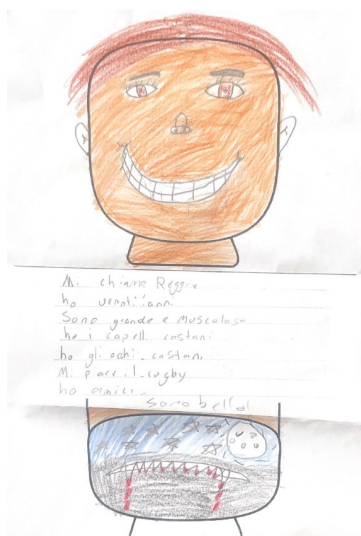 Mi chiamo Reggie
ho ventiianni
Sono grande e muscoloso
ho i capelli castani
ho gli occhi castani
Mi piace il rugby
ho amici
Sono bello!